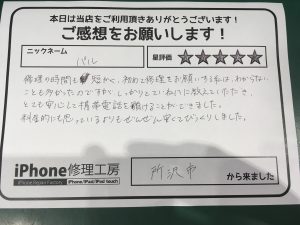 本日は当店をご利用頂きありがとうございます！
ご感想をお願いします！
ニックネーム
パル
星評価 ★★★★★
修理の時間も短かく、初めて修理をお願いする私は、わからない
ことも多かったのですが、しっかりとていねいに教えていただき、
とても安心して携帯電話を預けることができました。
料金的にも思っているよりもぜんぜん安くてびっくりしました。
iPhone修理工房
iPhone Repair Factory iPhone/iPad/iPod touch
所沢市
から来ました